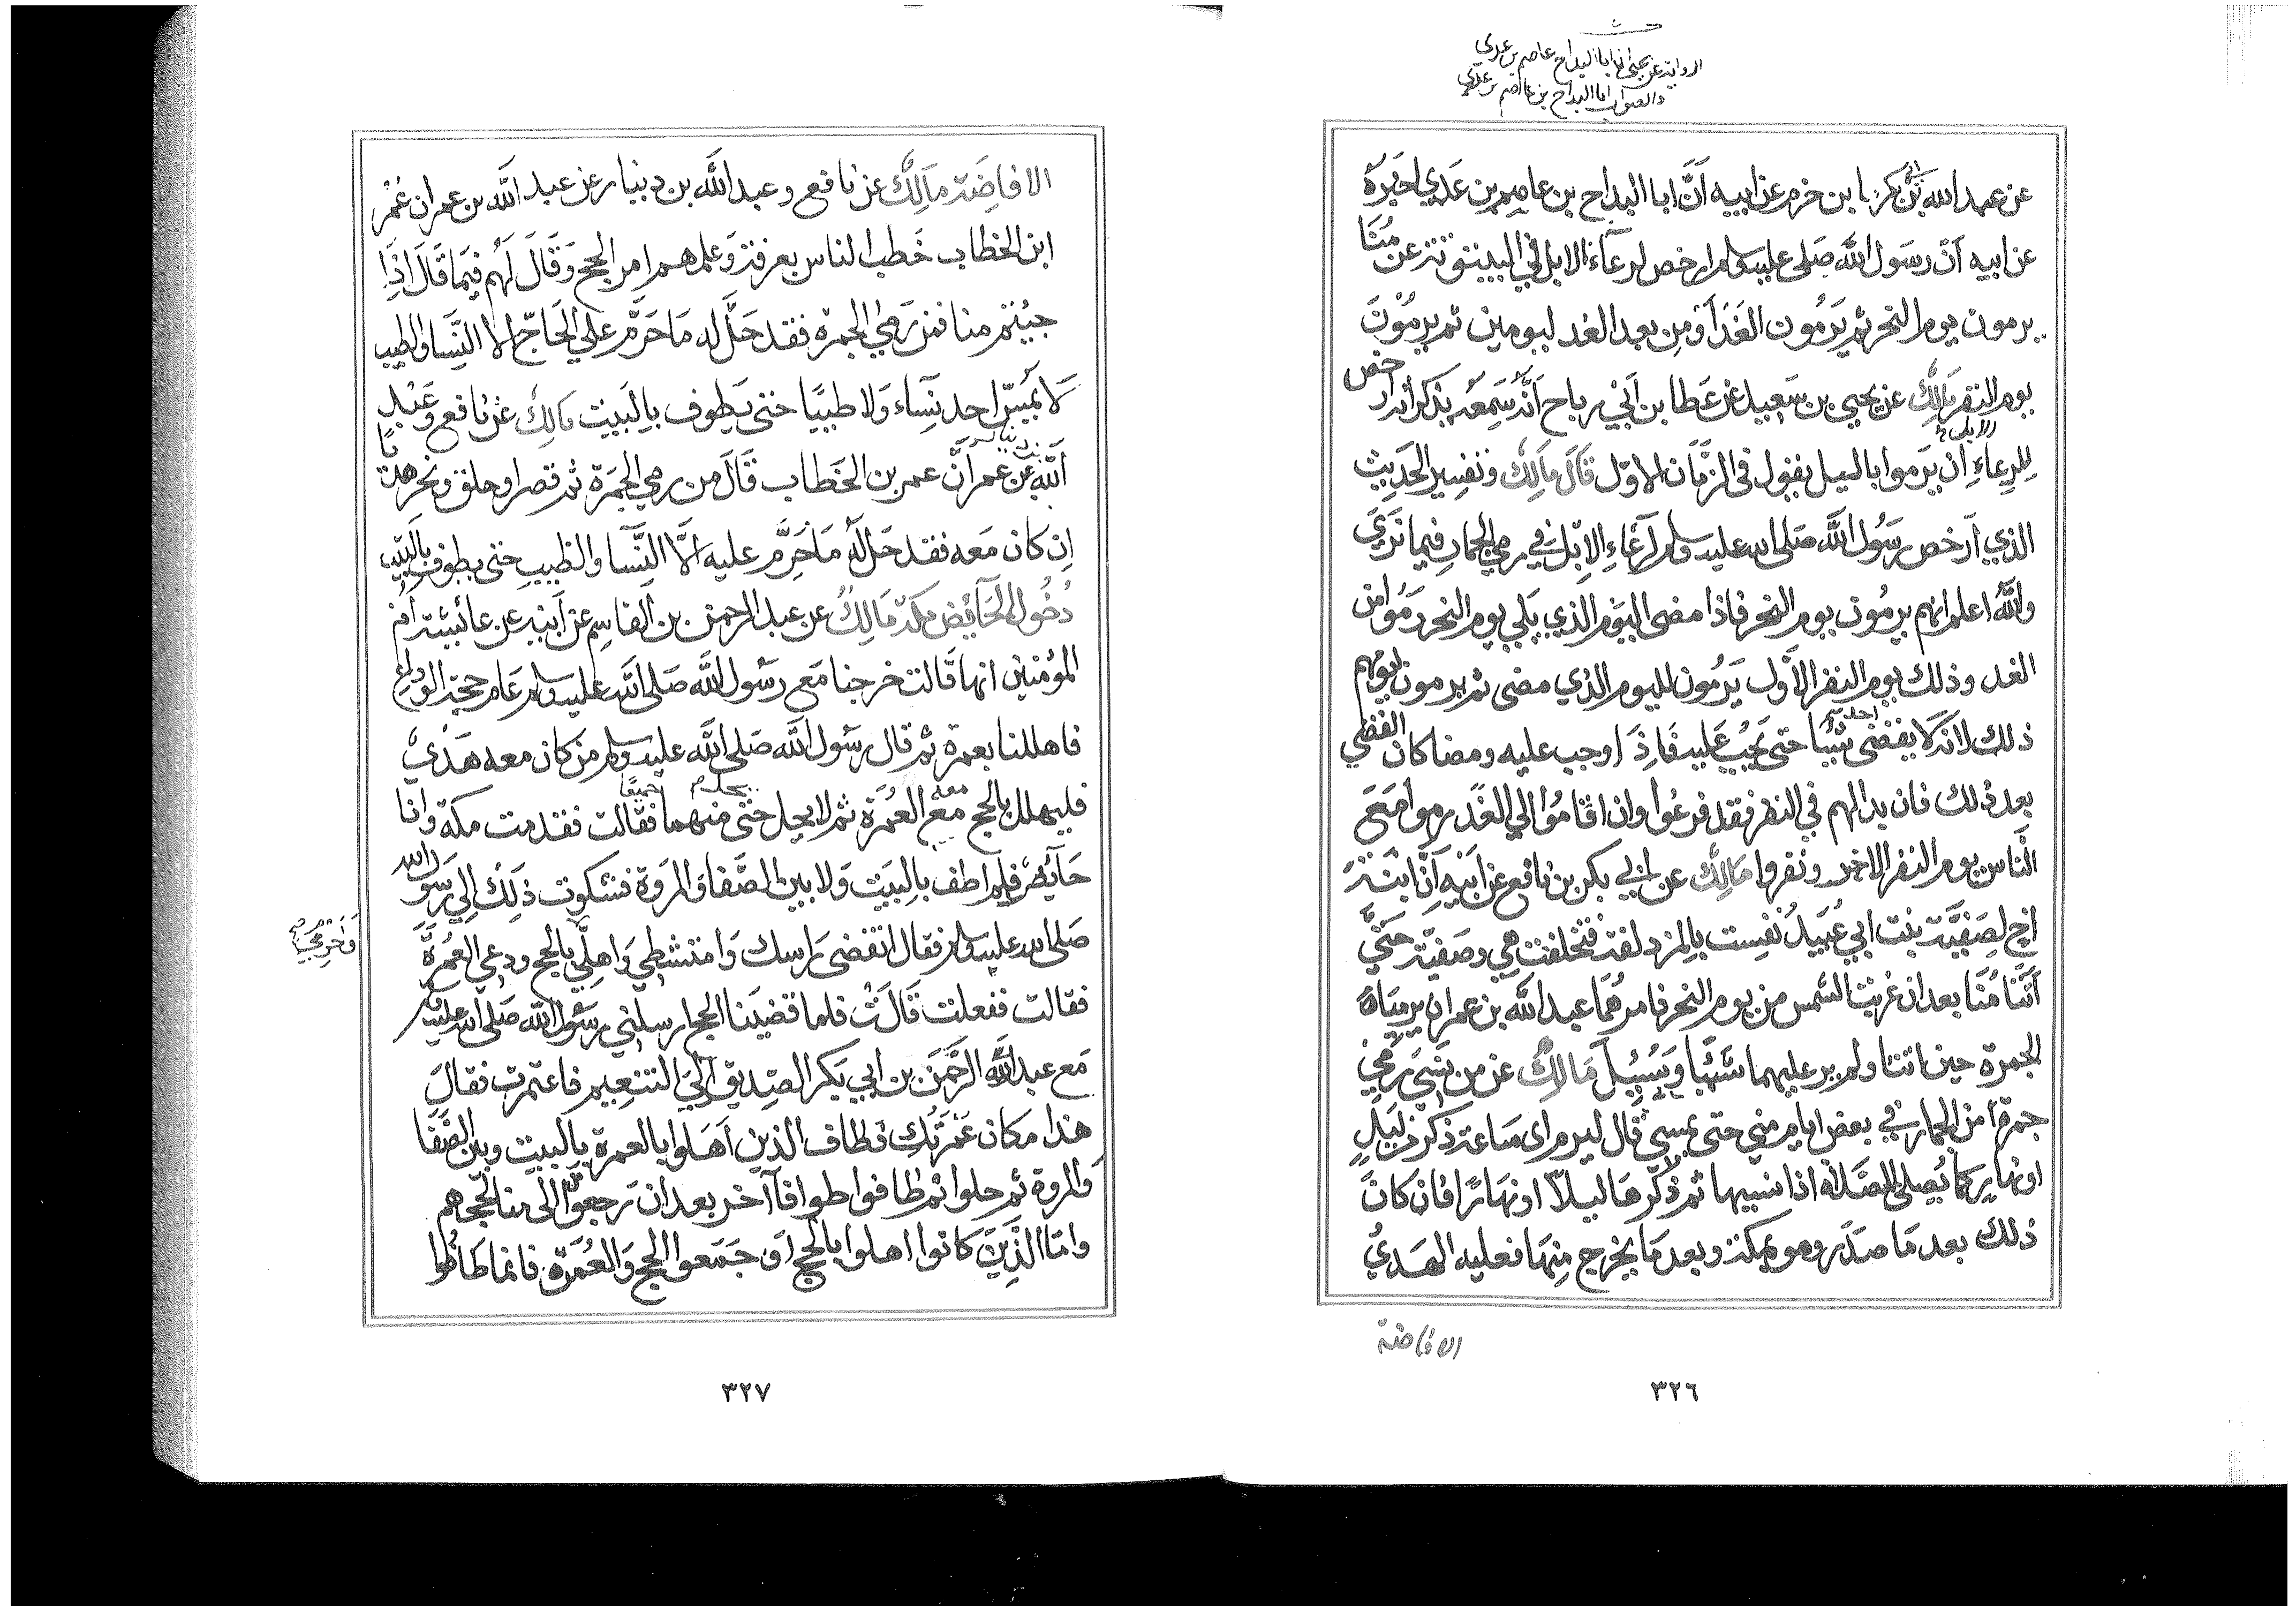 الرواية عن يحيى ان ابا البداح عاصم بن عدي
والصواب ابا البداح بن عاصم بن عدي
عن عبد الله بن ابي بكر بن خرم عن ابيه اَنَّ ابا البداح بن عاصم بن عَدِي اخبَره
عن ابيه اَنَّ رسول الله صَلى عليه وسلم ارخص لرعآء الابل في البيتوتة عن مُنَا
يرمون يوم النحر ثم يَرمُون الغَدَ اَوْ مِن بعد الغد ليومين ثم يرمُونَ
يوم النفر مَالِك عن يحيى بن سَعيد عَن عَطا بن اَبي رباح اَنَّه سَمِعَه يذكر أنه ارخص
للرِعاءِ اَن يَرموا بالليل يقول في الزَّمَان الاوّل قَالَ مَالِك وتفسير الحَدِيث
الذي اَرخص رَسُول اللَّه صَلى الله عليه وسلم لرِعَاءِ الاِبل في رمي الجمار فيما نَرَي
واللَّه اعلم انهم يرمُون يوم النحر فاذا مضى اليَوم الذي يَلي يوم النحر رَمَوا من
الغد وذلك يوم النفر الاَوَّل يَرمُون لليوم الذي مضى ثم يرمون ليومهم
ذلك لانه لا يقضى احد شيْيا حتى يَجبُ عَليه فَاِذَا وجب عليه ومضا كان القضي
بعد ذلك فان بدا لهم في النفر فقد فرغوا وان اقامُوا الي الغَد رموا مَعَ
النَّاس يوم النفر الاخر ونفروا مَالِك عن ابي بكر بن نافع عن اَبيه اَنَّ ابنَة
اخ لصَفيَّة بنت ابي عُبَيد نُفِست بالمزدلفة فتخلفت هي وصَفيّة حَتَّي
اَتَتَا مُنَا بعد ان غربت الشمس من يوم النحر فامرهُما عبد الله بن عمر ان يرميَاهُ
الجمرة حين اتتا ولم ير عليهما شَيْيا وَسُئِلَ مَالِك عن من نَسِيَ رَمي
جمرة من الجمار في بعض ايام مني حتى يمسي قال ليرم اى سَاعة ذكر من لَيلٍ
او نهارٍ كما يُصلي الصَّلاة اذا نسيها ثم ذَكَر هَا ليلاً او نهارًا فان كانَ
ذلك بعد مَا صدَر وهو بمكة وبعد مَا يخرج مِنهَا فعليه الهَديُ
الافاضة
٣٢٦
الافاضَة مَالِك عن نافع وعبد اللَّه بن دينار عن عبد اللَّه بن عمر ان عُمَر
ابن الخطاب خَطب الناس بعرفة وَعلمهم امر الحج وَقَالَ لَهُم فيمَا قَالَ اذَا
جيُتم منا فمن رَميٰ الجمرة فقد حَلَّ له مَا حَرَّم علي الحَاجّ الا النِّسَا والطيب
لَا يَمسّ احد نِسَاء وَلا طيبًا حتى يَطوف بالبَيت مَالِك عن نافع وعَبْد
اَللَّهِ بن دينار عن عمر اَنَّ عمر بن الخطاب قَالَ من رمي الجَمَرة ثم قصر او حلق ونحر هديًا
اِن كان مَعه فقد حَل لَهُ مَا حَرُم عليه اِلَّا النِّسَا والطيب حتى يطوف بالبَيت
دُخُول الحَآئِض مكة مَالِك عن عبد الرحمن بن القاسِم عن اَبيه عن عائشة اُم
المؤمنين انها قَالت خرجنا مَع رسُول اللَّه صَلى اللَّه عليه وسلم عَام حجة الوداع
فاهللنا بعمرة ثم قال رسُول اللَّه صَلى اللَّه عليه وسلم من كان معه هَدْيٌ
فليهلل بالحج مع العُمرَة ثم لا يحل حتى يحل منهما جميعًا فقالت فقدمت مكة وانا
حَآئِض فلم اطف بِالبَيت وَلا بين الصَّفا وَالمروة فشكوت ذَلِكَ اِلي رَسُول الله
صَلى الله عليه وسلم فقال انقضى رَاسك وَامتشطي وَاهلّي بالحج ودعي العُمرَةَ
فقالت ففعلت قَالَتْ فلما قضيَنا الحج ارسلني رسُول اللَّه صَلى الله عليه وسلم
مَع عبد الرَّحمن بن ابي بَكر الصّديق اِلَي التنعِيم فاعتمرت فقالَ
هذا مكان عُمرَتُكِ فطاف الذين اَهَلوا بالعمرة بالبَيت وبين الصَّفَا
وَالمروة ثم حلوا ثم طافوا طوافاً آخر بعد ان رَجعوا الى منا لحَجهم
وامّا الذَّيِنَ كانوا اهلوا بالحج اَو جَمَعوا الحج وَالعُمرَة فانما طَافُوا
٣٢٧